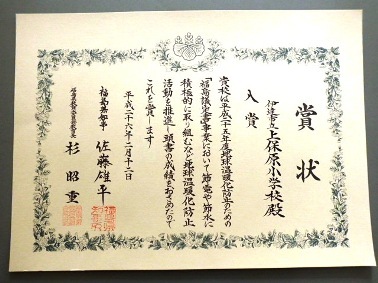 賞状
入賞
伊達市立上保原小学校殿
貴校は平成二十五年度地球温暖化防止のための
「福島議定書」事業において節電や節水に
積極的に取り組むなど地球温暖化防止
活動を推進し頭書の成績をおさめたので
これを賞します
平成二十六年二月十二日
福島県知事 佐藤雄平
杉昭重